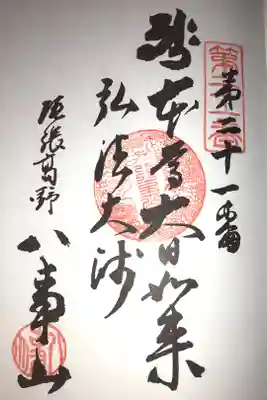 第二十一番
御本尊大日如来
弘法大師
尾張高野
八事山